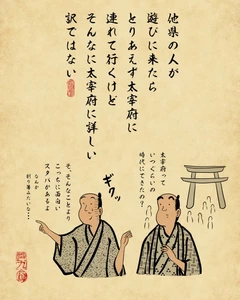 他県の人が
遊びに来たら
とりあえず太宰府に
連れて行くけど
そんなに太宰府に詳しい
訳ではない
太宰府って
いつぐらいの
時代にできたの?
ギクッ
そ、そんなことより
こっちに面白い
スタバがあるよ
なんか
刺り箸みたいな…